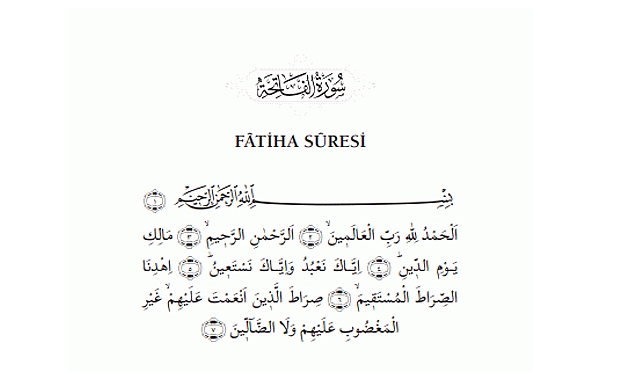 سُورَةُ الْفَاتِحَةِ
FÂTİHA SÛRESİ
بِسْمِ اللّٰهِ الرَّحْمٰنِ الرَّحِيمِ ﴿١﴾
اَلْحَمْدُ لِلّٰهِ رَبِّ الْعَالَمٖينَۙ ﴿٢﴾ اَلرَّحْمٰنِ الرَّحٖيمِۙ ﴿٣﴾ مَالِكِ
يَوْمِ الدّٖينِؕ ﴿٤﴾ اِيَّاكَ نَعْبُدُ وَاِيَّاكَ نَسْتَعٖينُؕ ﴿٥﴾ اِهْدِنَا
الصِّرَاطَ الْمُسْتَقٖيمَۙ ﴿٦﴾ صِرَاطَ الَّذٖينَ اَنْعَمْتَ عَلَيْهِمْۙ غَيْرِ
الْمَغْضُوبِ عَلَيْهِمْ وَلَا الضَّٓالّٖينَ ﴿٧﴾